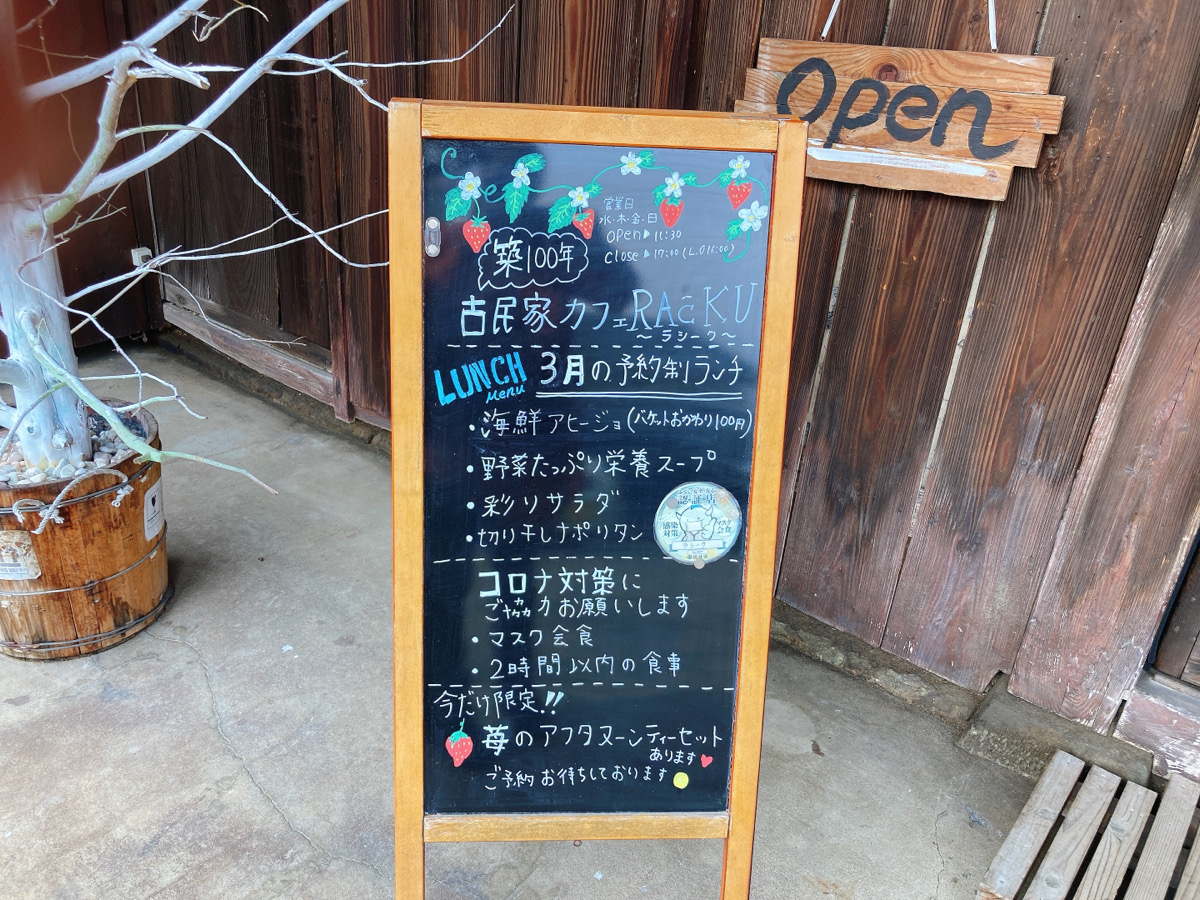 Open
営業日
水・木・金・日
open▶11:30
close▶17:00(L.O16:00)
築100年
古民家カフェRACKU
~ラシーク~
LUNCH
Menu
3月の予約制ランチ
・海鮮アヒージョ(バケットおかわり100円)
・野菜たっぷり栄養スープ
・彩りサラダ
・切り干しナポリタン
認証店
感染
対策
マスク
会食
ラシーク
コロナ対策に
ご協力お願いします
・マスク会食
・2時間以内の食事
今だけ限定!!
苺のアフタヌーンティーセット
あります
ご予約お待ちしております